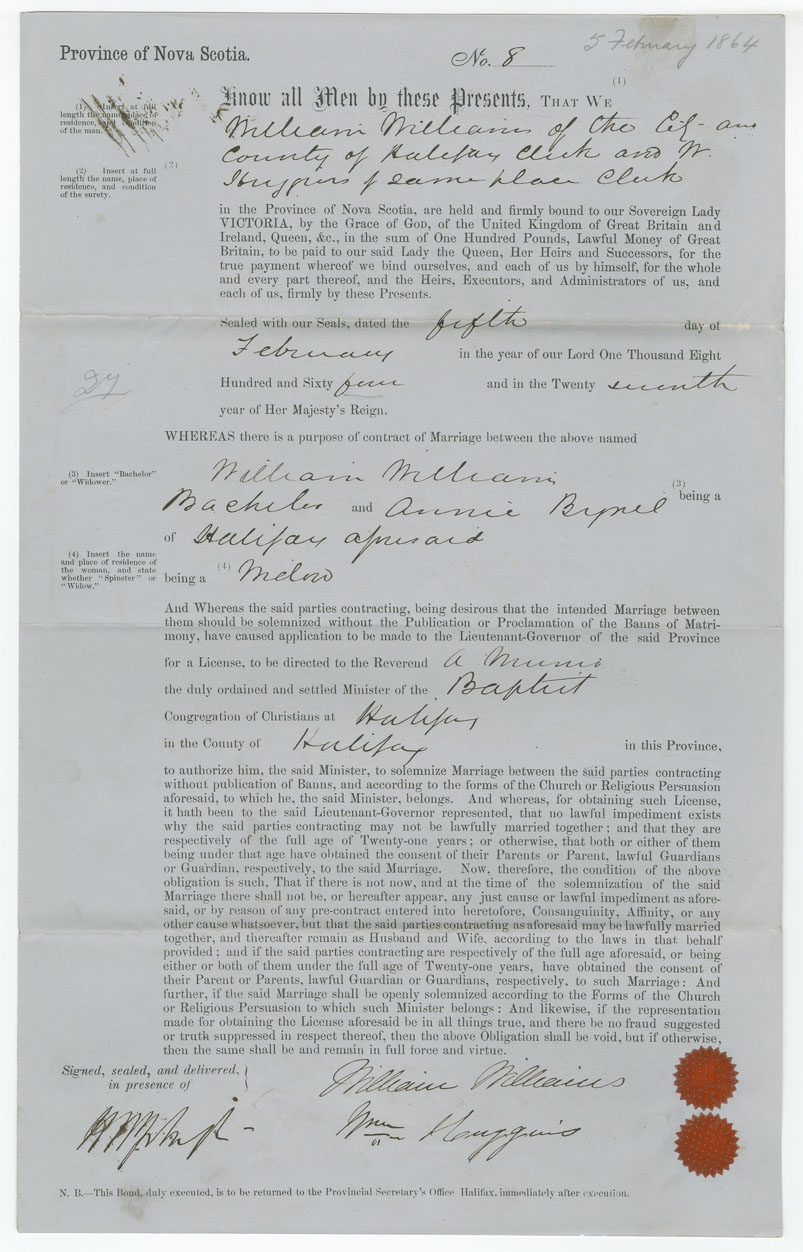 5 February 1864
Province of Nova Scotia.
No. 8
(1)
Know all Men by these Presents, THAT WE
(1) Insert at full
length the name, place of
residence, and condition
of the man.
William Williams of the City and
County of Halifax Clerk and W.
(2)
(2) Insert at full
length the name, place of
residence, and condition
of the surety.
Huggins of same place Clerk
in the Province of Nova Scotia, are held and firmly bound to our Sovereign Lady
VICTORIA, by the Grace of GOD, of the United Kingdom of Great Britain and
Ireland, Queen, &c., in the sum of One Hundred Pounds, Lawful Money of Great
Britain, to be paid to our said Lady the Queen, Her Heirs and Successors, for the
true payment whereof we bind ourselves, and each of us by himself, for the whole
and every part thereof, and the Heirs, Executors, and Administrators of us, and
each of us, firmly by these Presents.
Sealed with our Seals, dated the fifth day of
February in the year of our Lord One Thousand Eight
27
Hundred and Sixty four and in the Twenty seventh
year of Her Majesty's Reign.
WHEREAS there is a purpose of contract of Marriage between the above named
(3) Insert "Bachelor"
or "Widower."
William Williams
(3)
being a
Bachelor and Annie
of Halifax aforesaid
(4) Insert the name
and place of residence of
the woman, and state
whether "Spinster" or
"Widow."
being a (4) Widow
And Whereas the said parties contracting, being desirous that the intended Marriage between
them should be solemnized without the Publication or Proclamation of the Banns of Matri-
mony, have caused application to be made to the Lieutenant-Governor of the said Province
for a License, to be directed to the Reverend A
the duly ordained and settled Minister of the Baptist
Congregation of Christians at Halifax
in the County of Halifax in this Province,
to authorize him, the said Minister, to solemnize Marriage between the said parties contracting
without publication of Banns, and according to the forms of the Church or Religious Persuasion
aforesaid, to which he, the said Minister, belongs. And whereas, for obtaining such License,
it hath been to the said Lieutenant-Governor represented, that no lawful impediment exists
why the said parties contracting may not be lawfully married together; and that they are
respectively of the full age of Twenty-one years; or otherwise, that both or either of them
being under that age have obtained the consent of their Parents or Parent, lawful Guardians
or Guardian, respectively, to the said Marriage. Now, therefore, the condition of the above
obligation is such, That if there is not now, and at the time of the solemnization of the said
Marriage there shall not be, or hereafter appear, any just cause or lawful impediment as afore-
said, or by reason of any pre-contract entered into heretofore, Consanguinity, Affinity, or any
other cause whatsoever, but that the said parties contracting as aforesaid may be lawfully married
together, and thereafter remain as Husband and Wife, according to the laws in that behalf
provided; and if the said parties contracting are respectively of the full age aforesaid, or being
either or both of them under the full age of Twenty-one years, have obtained the consent of
their Parent or Parents, lawful Guardian or Guardians, respectively, to such Marriage: And
further, if the said Marriage shall be openly solemnized according to the Forms of the Church
or Religious Persuasion to which such Minister belongs: And likewise, if the representation
made for obtaining the License aforesaid be in all things true, and there be no fraud suggested
or truth suppressed in respect thereof, then the above Obligation shall be void, but if otherwise,
then the same shall be and remain in full force and virtue.
Signed, sealed, and delivered,
in presence of
William Williams
Wm Huggins
N. B.—This Bond, duly executed, is to be returned to the Provincial Secretary's Office Halifax, immediately after execution.